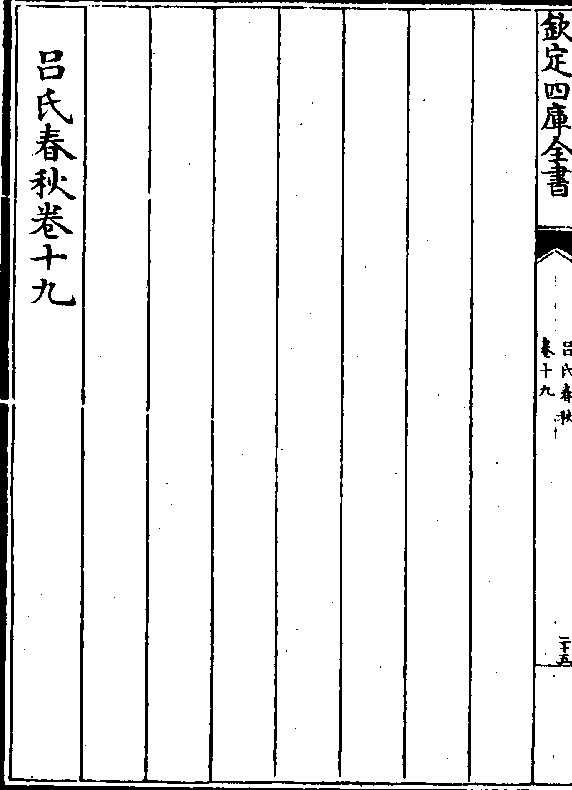 欽定四庫全書
吕氏春秋
卷十九
二十五
吕氏春秋卷十九